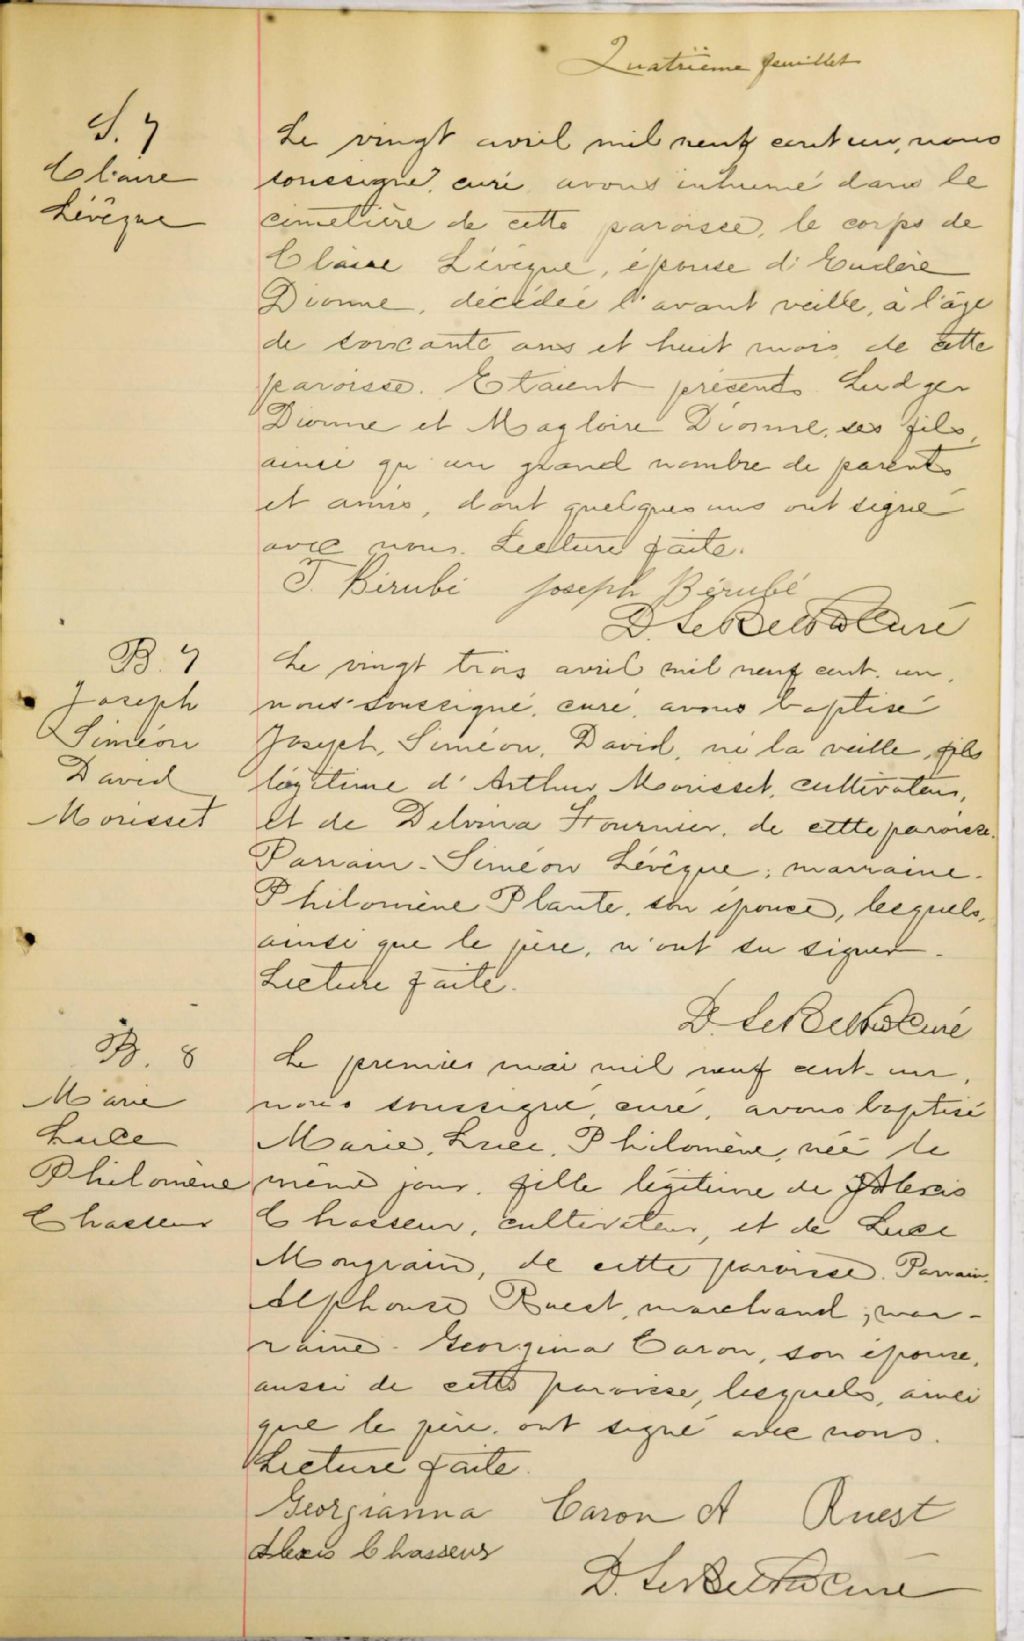 Quatrième feuillet
S. 7
Claire
Lévêque
Le vingt avril mil neuf cent un, nous
soussigné, curé, avons inhumé dans le
cimetière de cette paroisse, le corps de
Claire Lévêque, épouse d'
Dionne, décédée l'avant veille, à l'âge
de soixante ans et huit mois, de cette
paroisse. Etaient présents Ludger
Dionne et Magloire Dionne, ses fils,
ainsi qu'un grand nombre de parents
et amis, dont quelques uns ont signé
avec nous. Lecture faite.
T. Bérubé Joseph Bérubé
D. Curé
B. 7
Joseph
Siméon
David
Morisset
Le vingt trois avril mil neuf cent un,
nous soussigné, curé, avons baptisé
Joseph, Siméon, David, né la veille, fils
légitime d'Arthur Morisset, cultivateur,
et de Delvina Fournier, de cette paroisse.
Parrain - Siméon Lévêque; marraine -
Philomène Plante, son épouse, lesquels,
ainsi que le père, n'ont su signer.
Lecture faite.
D. Curé
B. 8
Marie
Luce
Philomène
Chasseur
Le premier mai mil neuf cent un,
nous soussigné, curé, avons baptisé
Marie, Luce, Philomène, née le
même jour, fille légitime de Alexis
Chasseur, cultivateur, et de Luce
Mongrain, de cette paroisse. Parrain.
Alphonse Ruest, marchand; mar-
raine - Georgina Caron, son épouse,
aussi de cette paroisse, lesquels, ainsi
que le père, ont signé avec nous.
Lecture faite.
Georgianna Caron A Ruest
Alexis Chasseur
D. Curé